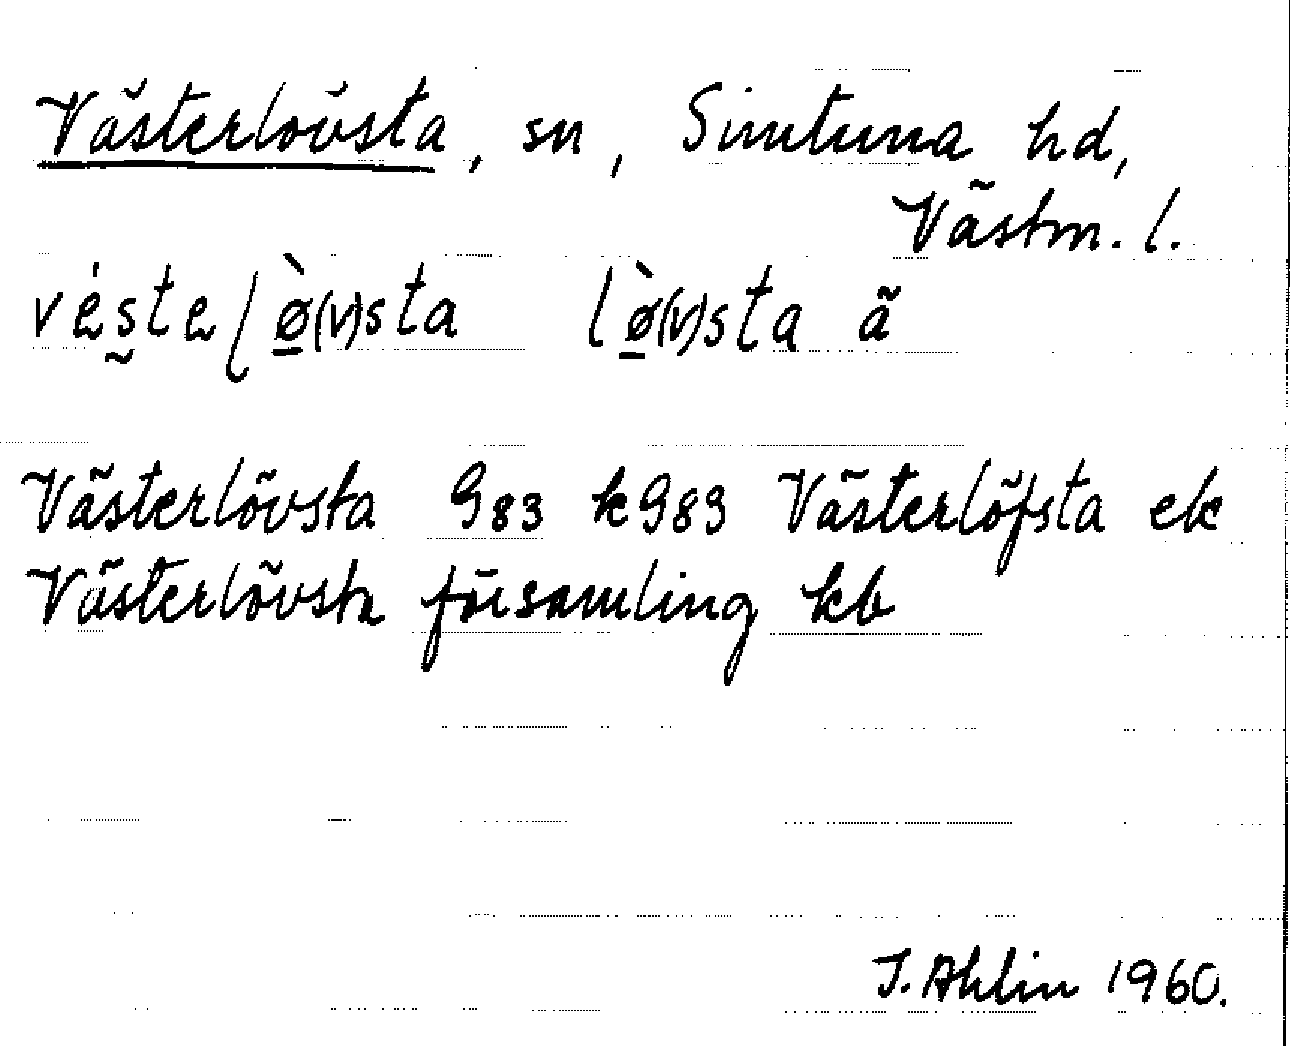 Västerlövsta, sn, Simtuna hd,
Västm. l.
vèstelø̀(v)sta lø̀(v)sta ã
Västerlövsta G83 kG83 Västerlöfsta ek
Västerlövsta församling kb
J. Ahlin 1960.